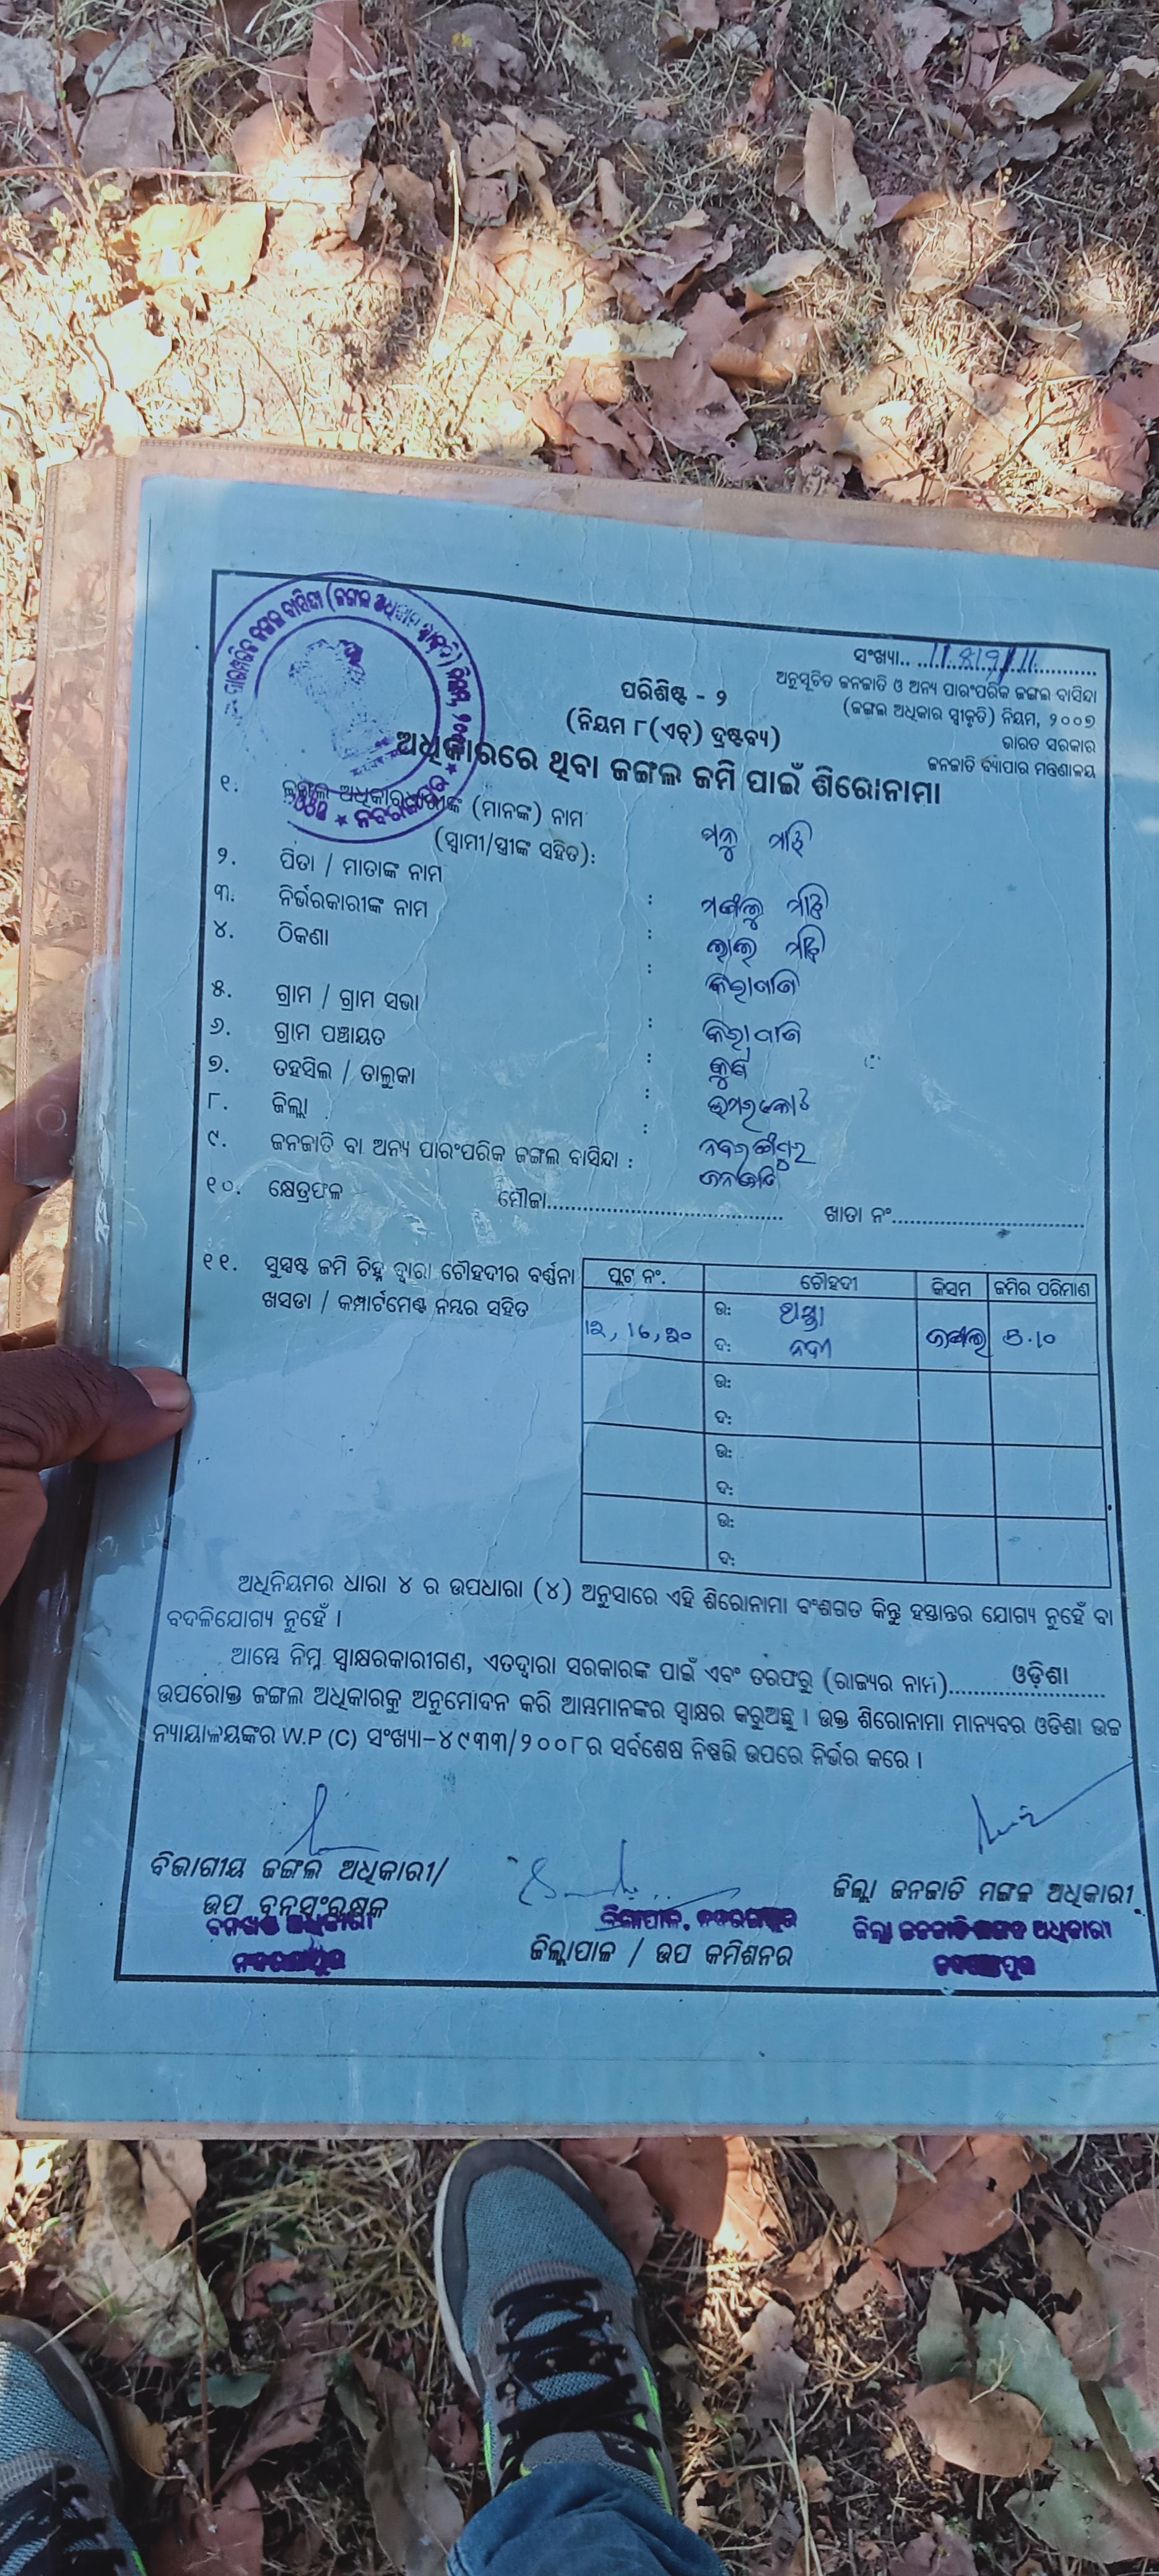 ସଂଖ୍ୟା..
ଅନୁସୂଚିତ ଜନଜାତି ଓ ଅନ୍ୟ ପାରଂପରିକ ଜଙ୍ଗଲ ବାସିନ୍ଦା
(ଜଙ୍ଗଲ ଅଧିକାର ସ୍ୱୀକୃତି) ନିୟମ, ୨୦୦୭
ଭାରତ ସରକାର
ଜନଜାତି ବ୍ୟାପାର ମନ୍ତ୍ରଣାଳୟ
ପରିଶିଷ୍ଟ - ୨
(ନିୟମ ୮(ଏଚ୍) ଦ୍ରଷ୍ଟବ୍ୟ)
ଅଧିକାରରେ ଥିବା ଜଙ୍ଗଲ ଜମି ପାଇଁ ଶିରୋନାମା
୧. ଜଙ୍ଗଲ ଅଧିକାରଧାରୀଙ୍କ (ମାନଙ୍କ) ନାମ
(ସ୍ୱାମୀ/ସ୍ତ୍ରୀଙ୍କ ସହିତ): ମନୁ ମାଝି
୨. ପିତା / ମାତାଙ୍କ ନାମ : ମଙ୍ଗଲୁ ମାଝି
୩. ନିର୍ଭରକାରୀଙ୍କ ନାମ : ଲାଲ ମାଝି
୪. ଠିକଣା :
୫. ଗ୍ରାମ / ଗ୍ରାମ ସଭା :
୬. ଗ୍ରାମ ପଞ୍ଚାୟତ :
୭. ତହସିଲ / ତାଲୁକା : ଉମରକୋଟ
୮. ଜିଲ୍ଲା : ନବରଙ୍ଗପୁର
୯. ଜନଜାତି ବା ଅନ୍ୟ ପାରଂପରିକ ଜଙ୍ଗଲ ବାସିନ୍ଦା : ଜନଜାତି
୧୦. କ୍ଷେତ୍ରଫଳ ମୌଜା.................................... ଖାତା ନଂ..............................
୧୧. ସୁସ୍ପଷ୍ଟ ଜମି ଚିହ୍ନ ଦ୍ୱାରା ଚୌହଦୀର ବର୍ଣ୍ଣନା
ଖସଡା / କମ୍ପାର୍ଟମେଣ୍ଟ ନମ୍ବର ସହିତ
ପ୍ଲଟ୍ ନଂ. ଚୌହଦୀ କିସମ ଜମିର ପରିମାଣ
ଉ:
ଦ: ନଦୀ ଜଙ୍ଗଲ
ଉ:
ଦ:
ଉ:
ଦ:
ଉ:
ଦ:
ଅଧିନିୟମର ଧାରା ୪ ର ଉପଧାରା (୪) ଅନୁସାରେ ଏହି ଶିରୋନାମା ବଂଶଗତ କିନ୍ତୁ ହସ୍ତାନ୍ତର ଯୋଗ୍ୟ ନୁହେଁ ବା
ବଦଳିଯୋଗ୍ୟ ନୁହେଁ ।
ଆମ୍ଭେ ନିମ୍ନ ସ୍ୱାକ୍ଷରକାରୀଗଣ, ଏତଦ୍ୱାରା ସରକାରଙ୍କ ପାଇଁ ଏବଂ ତରଫରୁ (ରାଜ୍ୟର ନାମ)..........ଓଡ଼ିଶା..........
ଉପରୋକ୍ତ ଜଙ୍ଗଲ ଅଧିକାରକୁ ଅନୁମୋଦନ କରି ଆମ୍ଭମାନଙ୍କର ସ୍ୱାକ୍ଷର କରୁଅଛୁ । ଉକ୍ତ ଶିରୋନାମା ମାନ୍ୟବର ଓଡିଶା ଉଚ୍ଚ
ନ୍ୟାୟାଳୟଙ୍କର W.P (C) ସଂଖ୍ୟା-୪୯୩୩/୨୦୦୮ର ସର୍ବଶେଷ ନିଷ୍ପତ୍ତି ଉପରେ ନିର୍ଭର କରେ ।
ବିଭାଗୀୟ ଜଙ୍ଗଲ ଅଧିକାରୀ/
ଉପ ବନସଂରକ୍ଷକ
ଜିଲ୍ଲାପାଳ, ନବରଙ୍ଗପୁର
ଜିଲ୍ଲାପାଳ / ଉପ କମିଶନର
ଜିଲ୍ଲା ଜନଜାତି ମଙ୍ଗଳ ଅଧିକାରୀ
ଜିଲ୍ଲା ଜନଜାତି ମଙ୍ଗଳ ଅଧିକାରୀ
ନବରଙ୍ଗପୁର